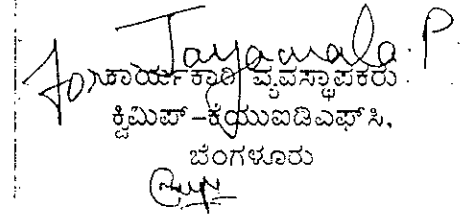 Jayamala. P
for ಕಾರ್ಯಕಾರಿ ವ್ಯವಸ್ಥಾಪಕರು
ಕ್ವಿಮಿಪ್-ಕೆಯುಐಡಿಎಫ್‌ಸಿ,
ಬೆಂಗಳೂರು